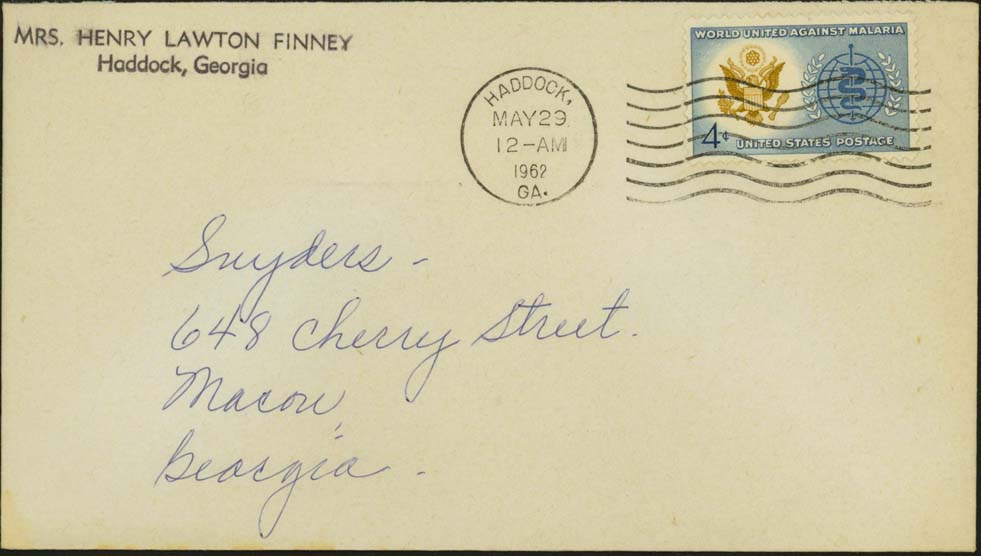 MRS. HENRY LAWTON FINNEY
Haddock, Georgia
HADDOCK,
MAY 29
12-AM
1962
GA.
WORLD UNITED AGAINST MALARIA
4¢ UNITED STATES POSTAGE
Snyders -
648 Cherry Street.
Macon,
Georgia -